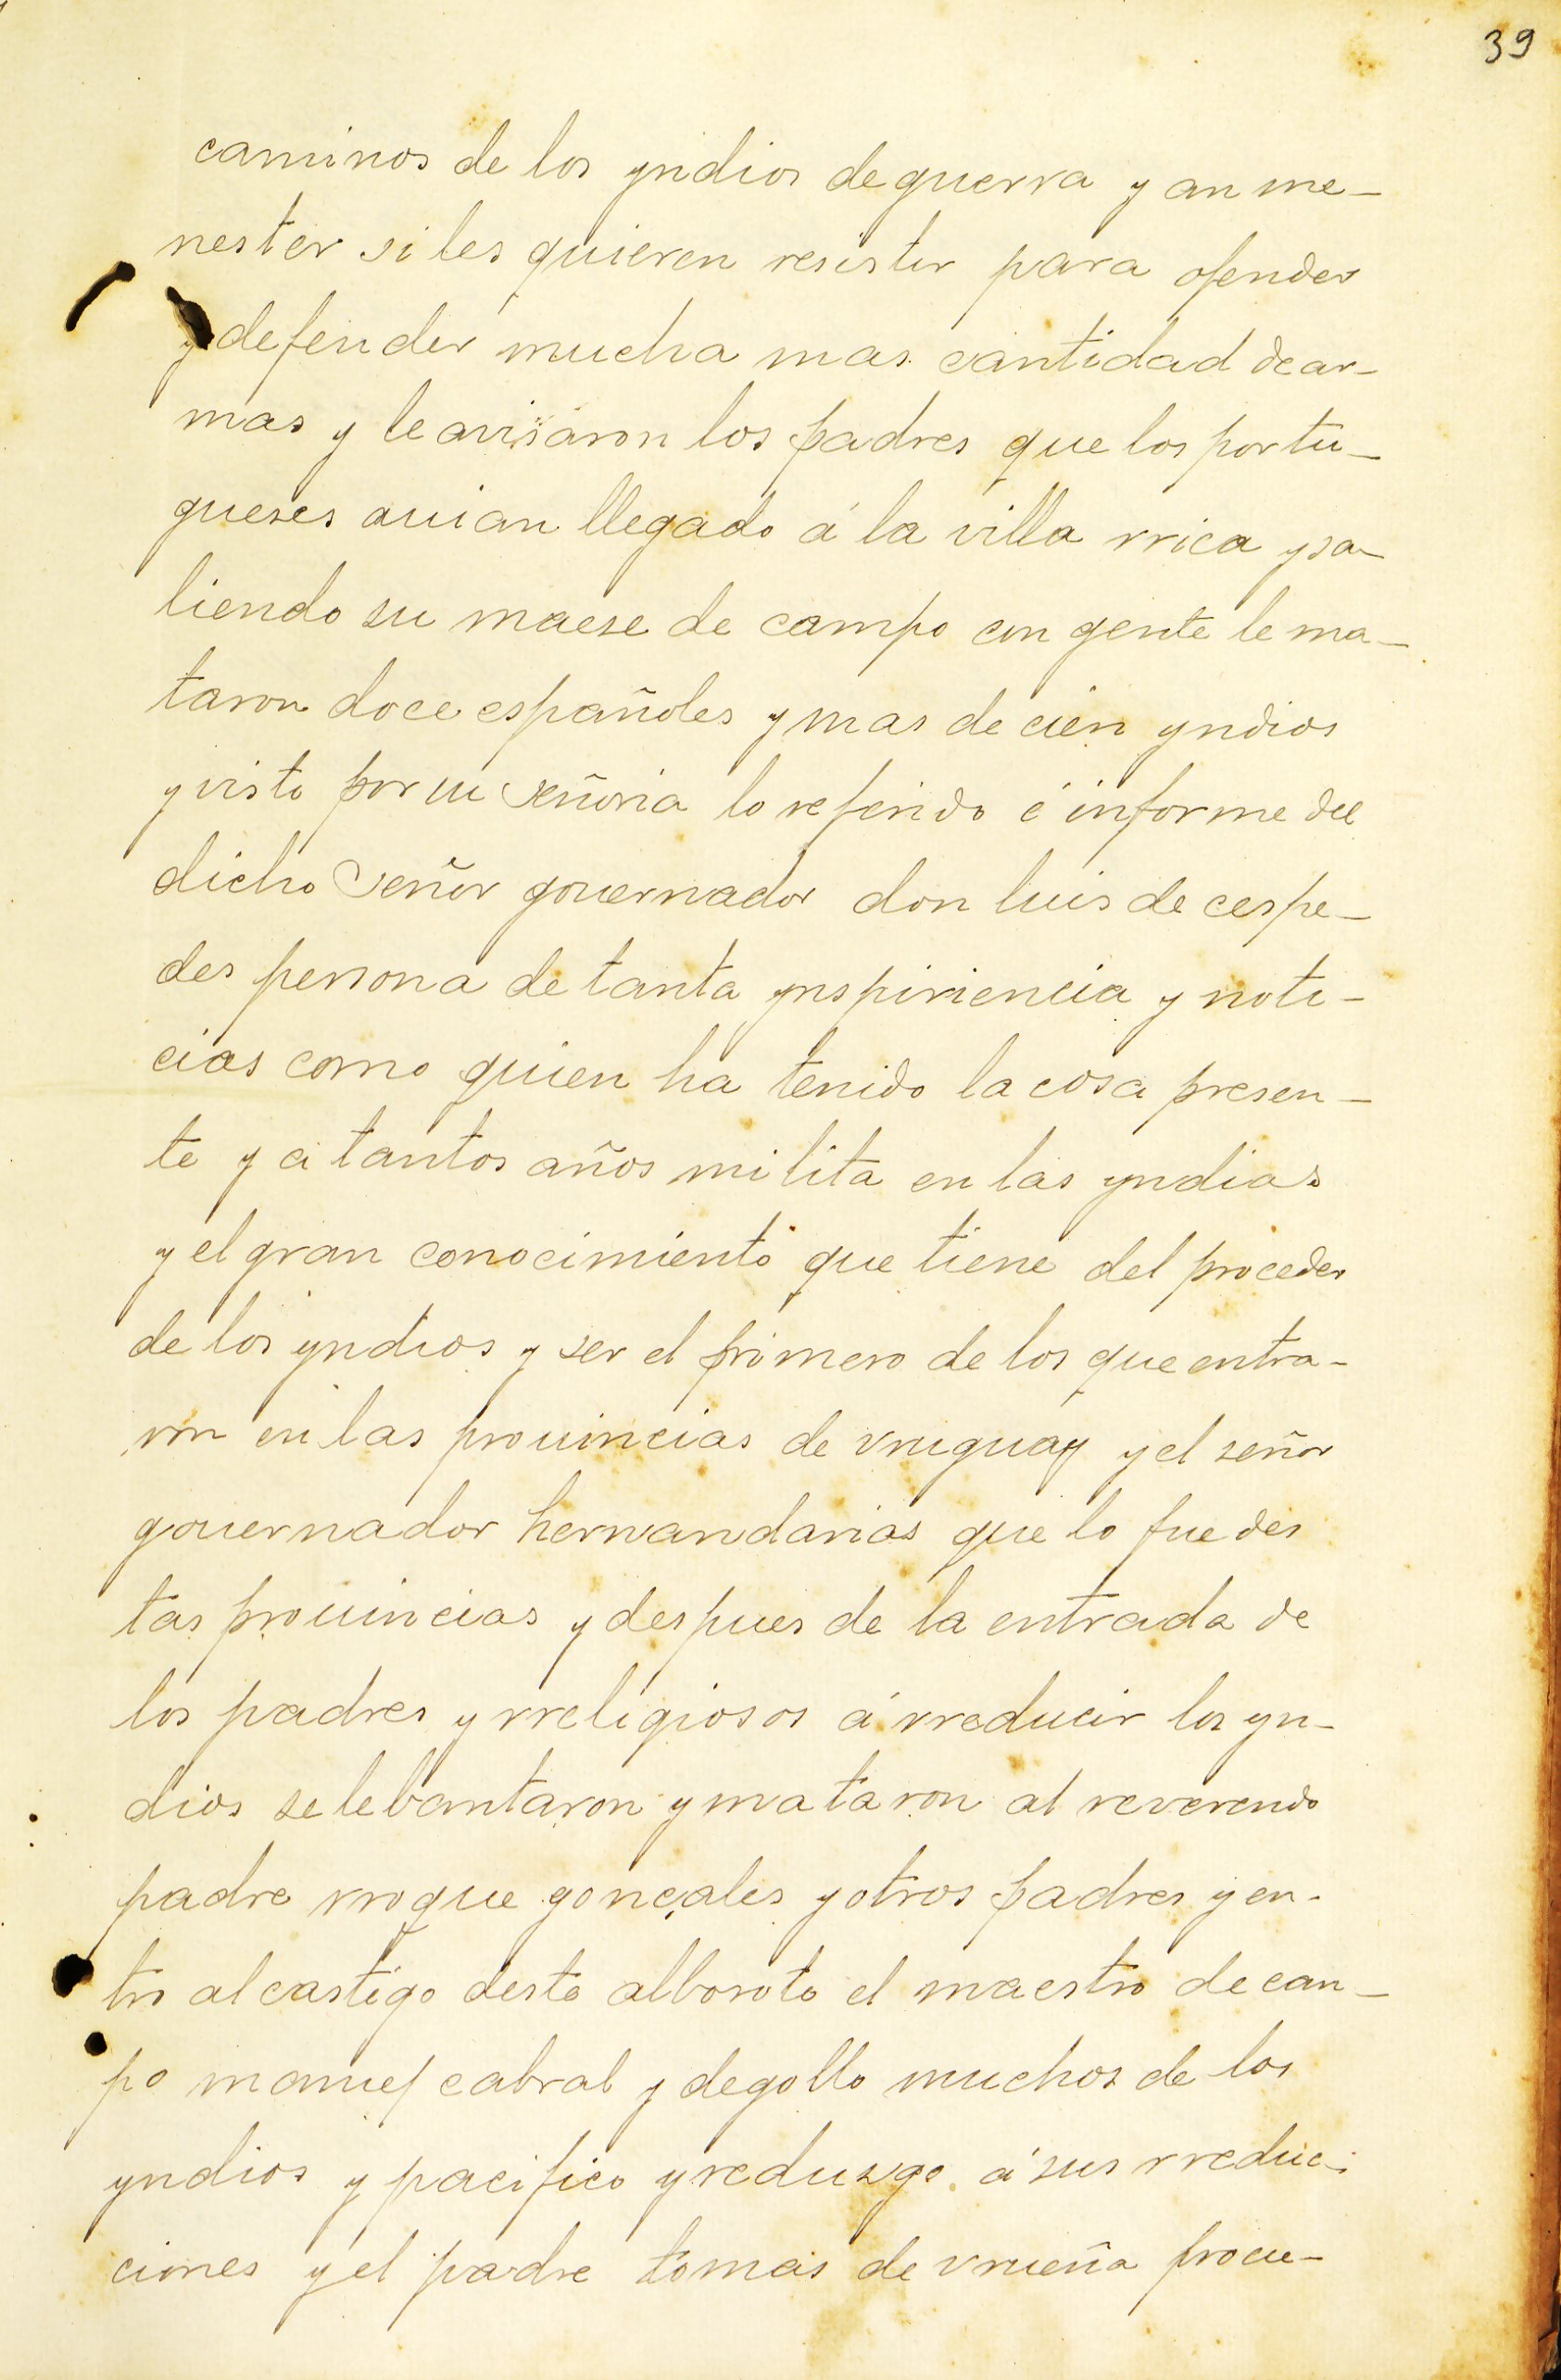 39
caminos de los yndios de guerra y an me-
nester si les quieren resistir para ofender
y defender mucha mas cantidad de ar-
mas y le avisaron los padres que los portu-
gueses auian llegado á la villa rrica y sa-
liendo su maese de campo con gente le ma-
taron doce españoles y mas de cien yndios
y visto por su señoria lo referido é informe del
dicho Señor governador don luis de cespe-
des persona de tanta ynspiriencia y noti-
cias como quien ha tenido la cosa presen-
te y a tantos años milita en las yndias
y el gran conocimiento que tiene del proceder
de los yndios y ser el primero de los que entra-
ron en las prouincias de vruguay y el señor
gouernador hernandarias que lo fue des
tas prouincias y despues de la entrada de
los padres y rreligiosos á rreducir los yn-
dios se lebantaron y mataron al reverendo
padre rroque gonçales y otros padres y en-
tro al castigo deste alboroto el maestro de can-
po manuel cabral y degollo muchos de los
yndios y pacifico y reduzgo á sus rreduci
ciones y el padre tomas de vrueña procu-